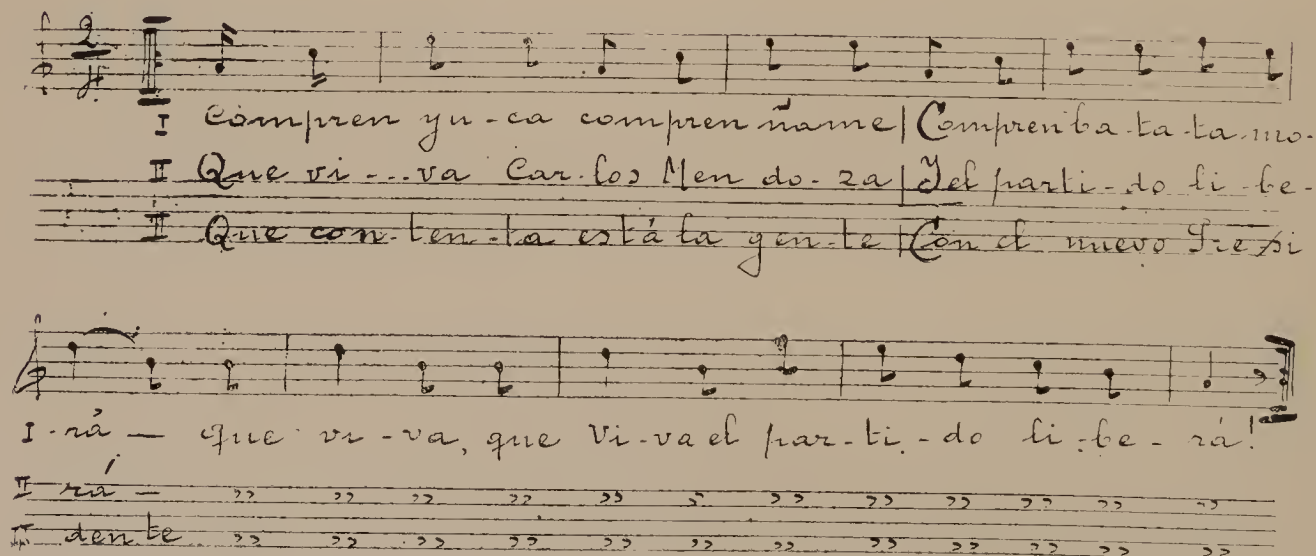 2
4
I Compren yu-ca compren ñame | Compren ba-ta-ta mo-
II Que vi-...va Car-los Men do-za | Y el parti-do li-be-
III Que con-ten-ta está la gen-te | Con el nuevo Presi
I -rá — que vi-va, que Vi-va el par-ti-do li-be-rá!
II rá — ,, ,, ,, ,, ,, ,, ,, ,, ,, ,, ,,
III dente ,, ,, ,, ,, ,, ,, ,, ,, ,, ,, ,,